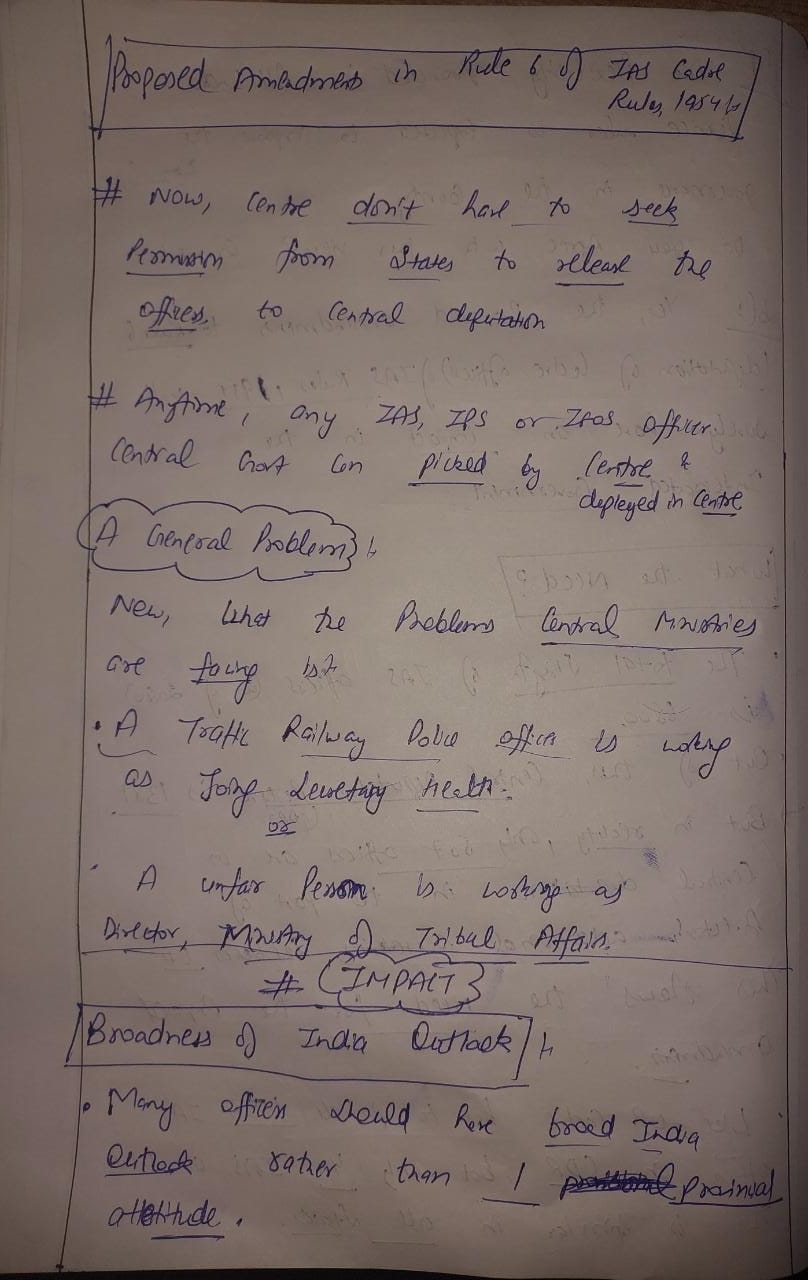 Proposed Amendments in Rule 6 of IAS Cadre
Rules, 1954 :-
# Now, Centre don't have to seek
Permission from States to release the
officers to Central deputation
# Anytime, any IAS, IPS or IFoS officer
Central Govt can picked by Centre &
deployed in Centre
A General Problem :-
Now, what the Problems Central Ministries
are facing is :-
• A Traffic Railway Police officer is working
as Joing Secretary Health.
or
• A unfair Person is working as
Director, Ministry of Tribal Affairs.
# IMPACT
Broadness of India Outlook :-
• Many officers should have broad India
Outlook rather than 1
attitude.